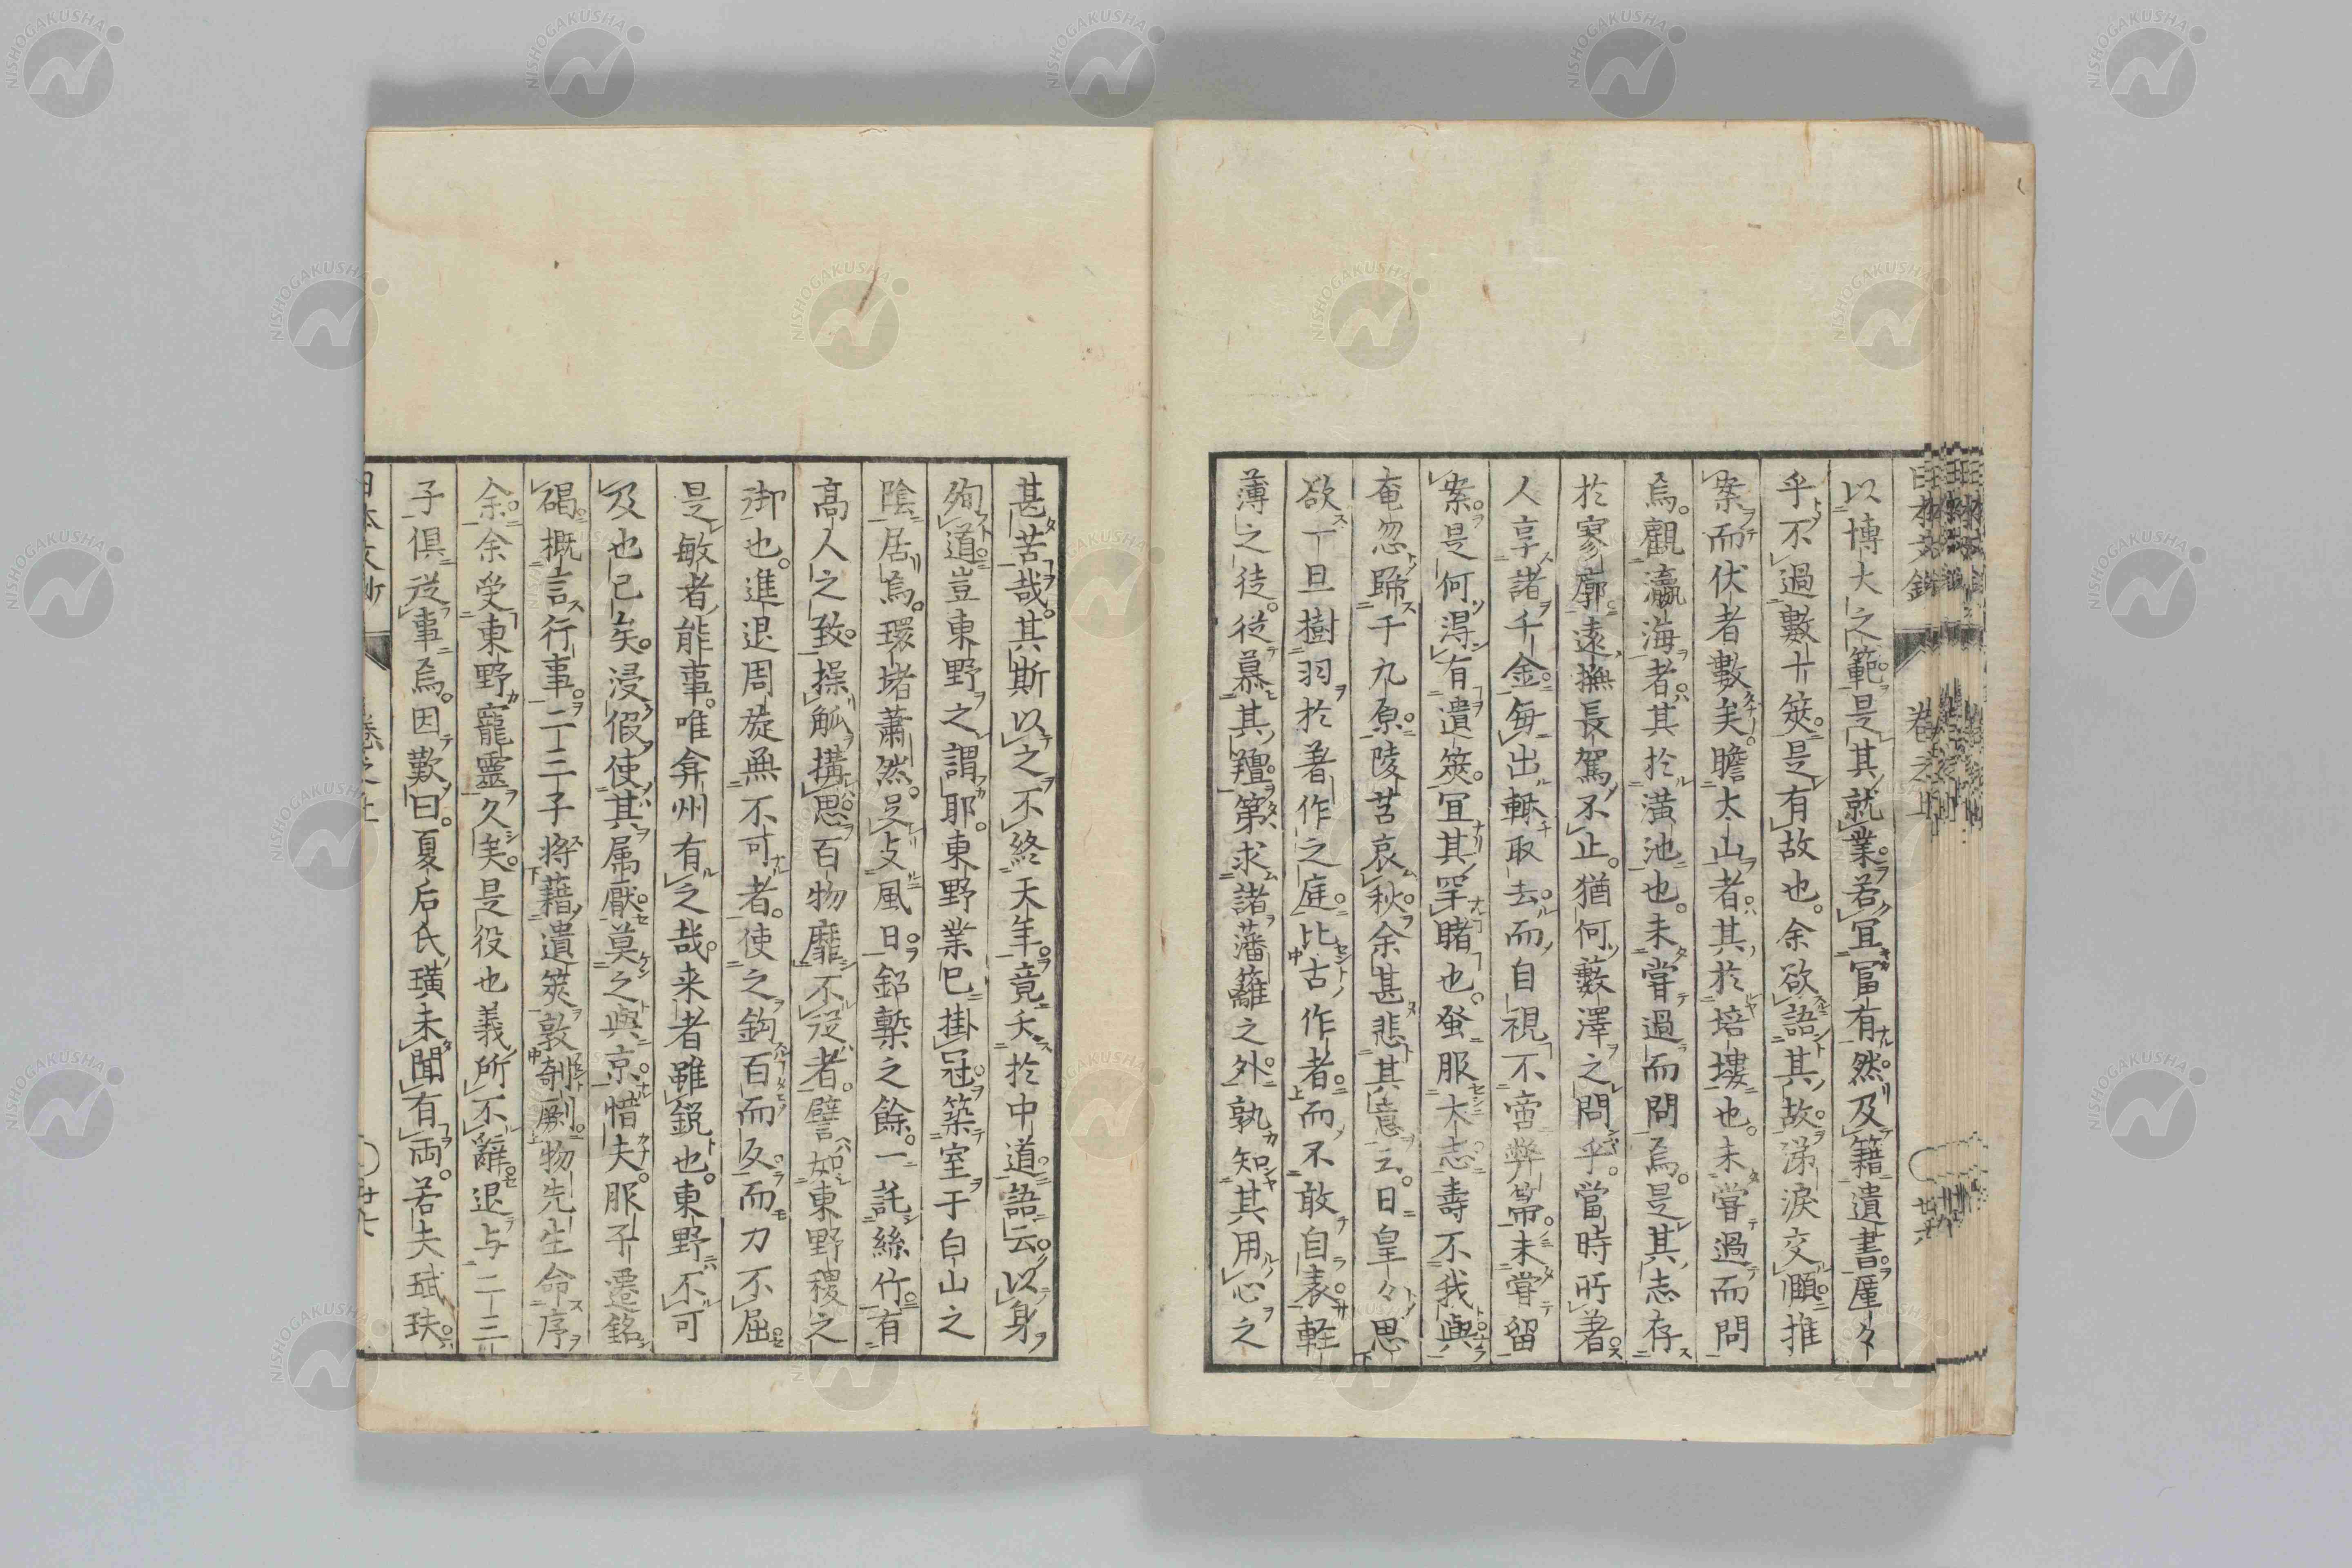 以博大之範是其就業若宜富有然及籍遺書厪々
乎不過數十筴是有故也余欲語其故涕淚交頤推
案而伏者數矣瞻太山者其於培塿也未嘗過而問
焉觀瀛海者其於潢池也未嘗過而問焉是其志存
於寥廓遠撫長駕不止猶何藪澤之問乎當時所著
人享諸千金每出輒取去而自視不啻弊帚未嘗留
案是何得有遺筴宜其罕睹也蚤服大志壽不我與
奄忽歸于九原陵苦哀秋余甚悲其意云日皇々思
欲一旦樹羽於著作之庭比古作者而不敢自表輕
薄之徒從慕其羶第求諸藩籬之外孰知其用心之
甚苦哉其斯以之不終天年竟夭於中道語云以身
殉道豈東野之謂耶東野業已掛冠築室于白山之
陰居焉環堵蕭然足攴風日鉛槧之餘一託絲竹有
高人之致操觚搆思百物靡不役者譬如東野稷之
御也進退周旋無不可者使之鈎百而反而力不屈
是敏者能事唯弇州有之哉来者雖銳也東野不可
及也已矣浸假使其属厭莫之與京惜夫服子遷銘
碣概言行事二三子將藉遺筴敦剞劂物先生命序
余余受東野寵靈久矣是役也義所不辭退与二三
子倶從事焉因歎曰夏后氏璜未聞有両若夫碔玞
日本文鈔
卷之上